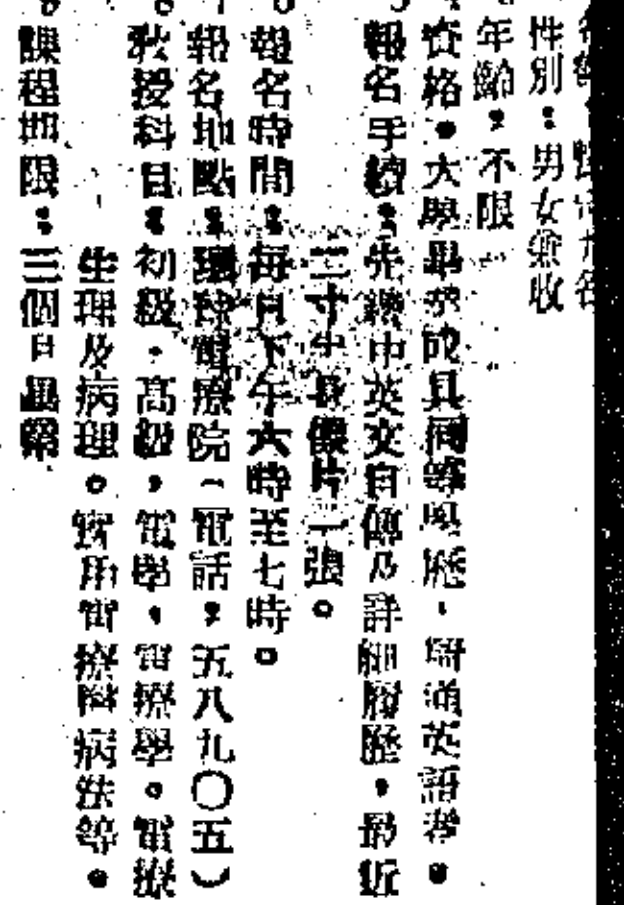 性別：男女兼收
年齡：不限
資格：大學畢業或具同等學歷，精通英語者。
報名手續：先繳中英文自傳及詳細履歷，最近
二寸半身像片一張。
報名時間：每日下午六時至七時。
報名地點：環球電療院（電話：五八九〇五）
教授科目：初級，高級，電學，電療學。電療
生理及病理。實用電療醫病法等。
課程期限：三個月畢業